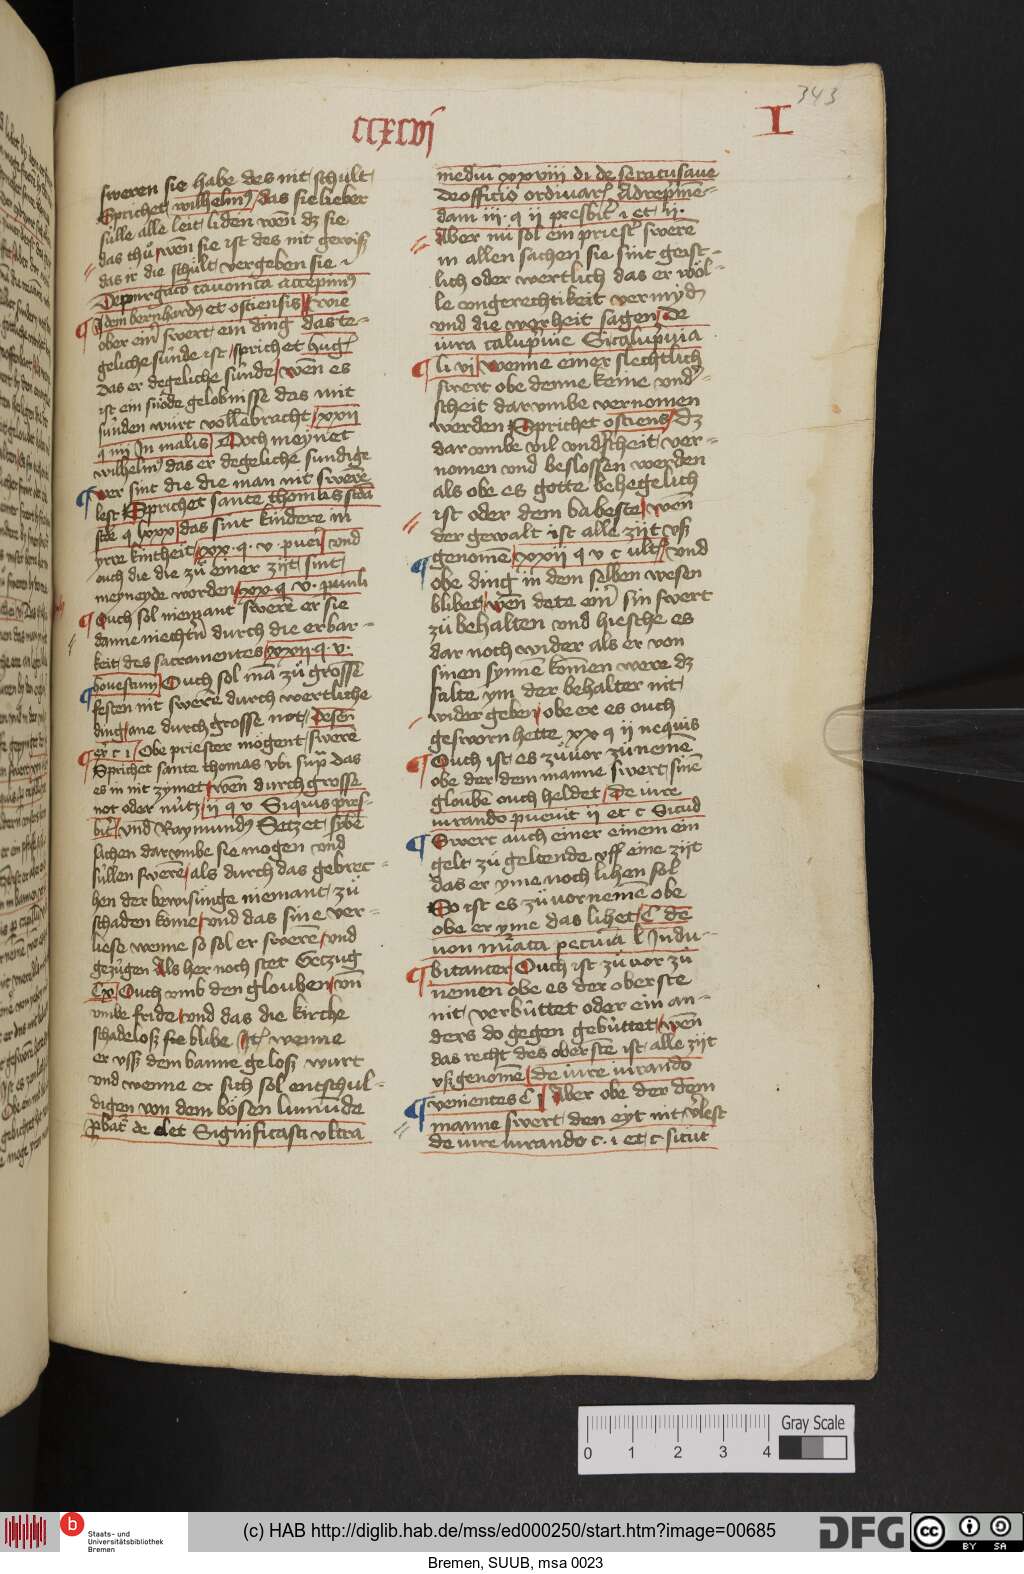 343
CCXCVI
I
sweren sie habe des nit schult
Sprichet wilhelmꝰ das sie lieber
sülle alle leit liden wen̄ dz sie
das thů wen̄ sie ist des nit gewisz
das ir die schült vergeben sie
De purgatō cauonica accepimꝰ
Idem bernhardꝰ et ostiensis wie
ober ein swert ein ding das te-
geliche sünde ist sprichet hug
Das er degeliche sünde wen̄ es
ist ein snöde gelobnisse das mit
sünden wurt vollebracht xxii
q iiij In malis Doch meynet
wilhelm das er degeliche sundige
wer sint die die man nit swerē
lest Sprichet sante thomas
q lxxx das sint kindere in
yrre kintheit xx q v pueri vnd
auch die die zů einer zijt sint
meyneyde worden xx q v
Ouch sol niemant swerē er sie
danne niechtrī durch die erbar-
keit des sacramentes xxii q v
honestum Ouch sol mā zů grosse
festen nit swerē durch wertliche
ding ane durch grosse not
c i Obe priester mögent swerē
Sprichet sante thomas vbi supͣ das
es in nit zymet wen̄ durch grosse
not oder nůtz ii q v Siquis pres-
bitͬ vnd Raymundꝰ Setzet sybē
sachen darvmbe sie mogen vnd
süllen swerē als durch das gebrec-
hen der bewisünge niemant zů
schaden kome vnd das sine ver-
liese wenne so sol er swerē vnd
gezügen Als her noch stet Getzug
Ouch vmb den glouben vn̄
vmbe fride vnd das die kirche
schadelosz sie blibe Itͤ wenne
er vsz dem banne gelosz wurt
vnd wenne er sich sol entschul-
digen von dem bösen lumūde
de elet Significasti vltra
mediū xxxviii di de
De officio ordinarͤ Ad reprime-
dam iii q ii presbitͬ i et ii
Aber nů sol ein priestͬ swerē
in allen sachen sie sint geist-
lich oder wertlich das er wöl-
le ongerechtikeit vermyd
vnd die worheit sagen De
iura calūpnie
li vi Wenne einer slechtlich
swert obe denne keine vnd-
scheit darvmbe vernomen
werden Sprichet ostiens dz
darvmbe vil vndscheit ver-
nomen vnd beslossen werden
als obe es gotte behegelich
ist oder dem babeste wen̄
der gewalt ist alle zijt vsz
genomē xxii q v c vltͥ vnd
obe ding in dem selben wesen
blibet wen̄ dete ein sin swert
zů behalten vnd hiesche es
dar noch wider als er von
sinen synnē komen were dz
salte ym der behalter nit
wider geben obe er es ouch
gesworn hette xx q ii nequis
Ouch ist es zůuor zů neme
obe der dem manne swert sinē
gloubē ouch heldet De iure
iurando pueuit ii et c Sicud
Swert auch einer einem ein
gelt zů geltende vff eine zijt
das er yme noch lihen sol
So ist es zů vor nemē obe
obe er yme das lihet C de
non nūata pecunia l Indu-
bitanter Ouch ist zů vor zů
nemen obe es der oberste
nit verbüttet oder ein an-
ders do gegen gebüttet wen̄
das recht des oberste ist alle zijt
vsz genomē de iure iurando
venientes C j Aber obe der dem
manne swert den eyt nit vͤlest
de iure iurando c i et c sicut
0 1 2 3 4
Gray Scale
b
Staats- und
Universitätsbibliothek
Bremen
(c) HAB http://diglib.hab.de/mss/ed000250/start.htm?image=00685
DFG
cc BY SA
Bremen, SUUB, msa 0023